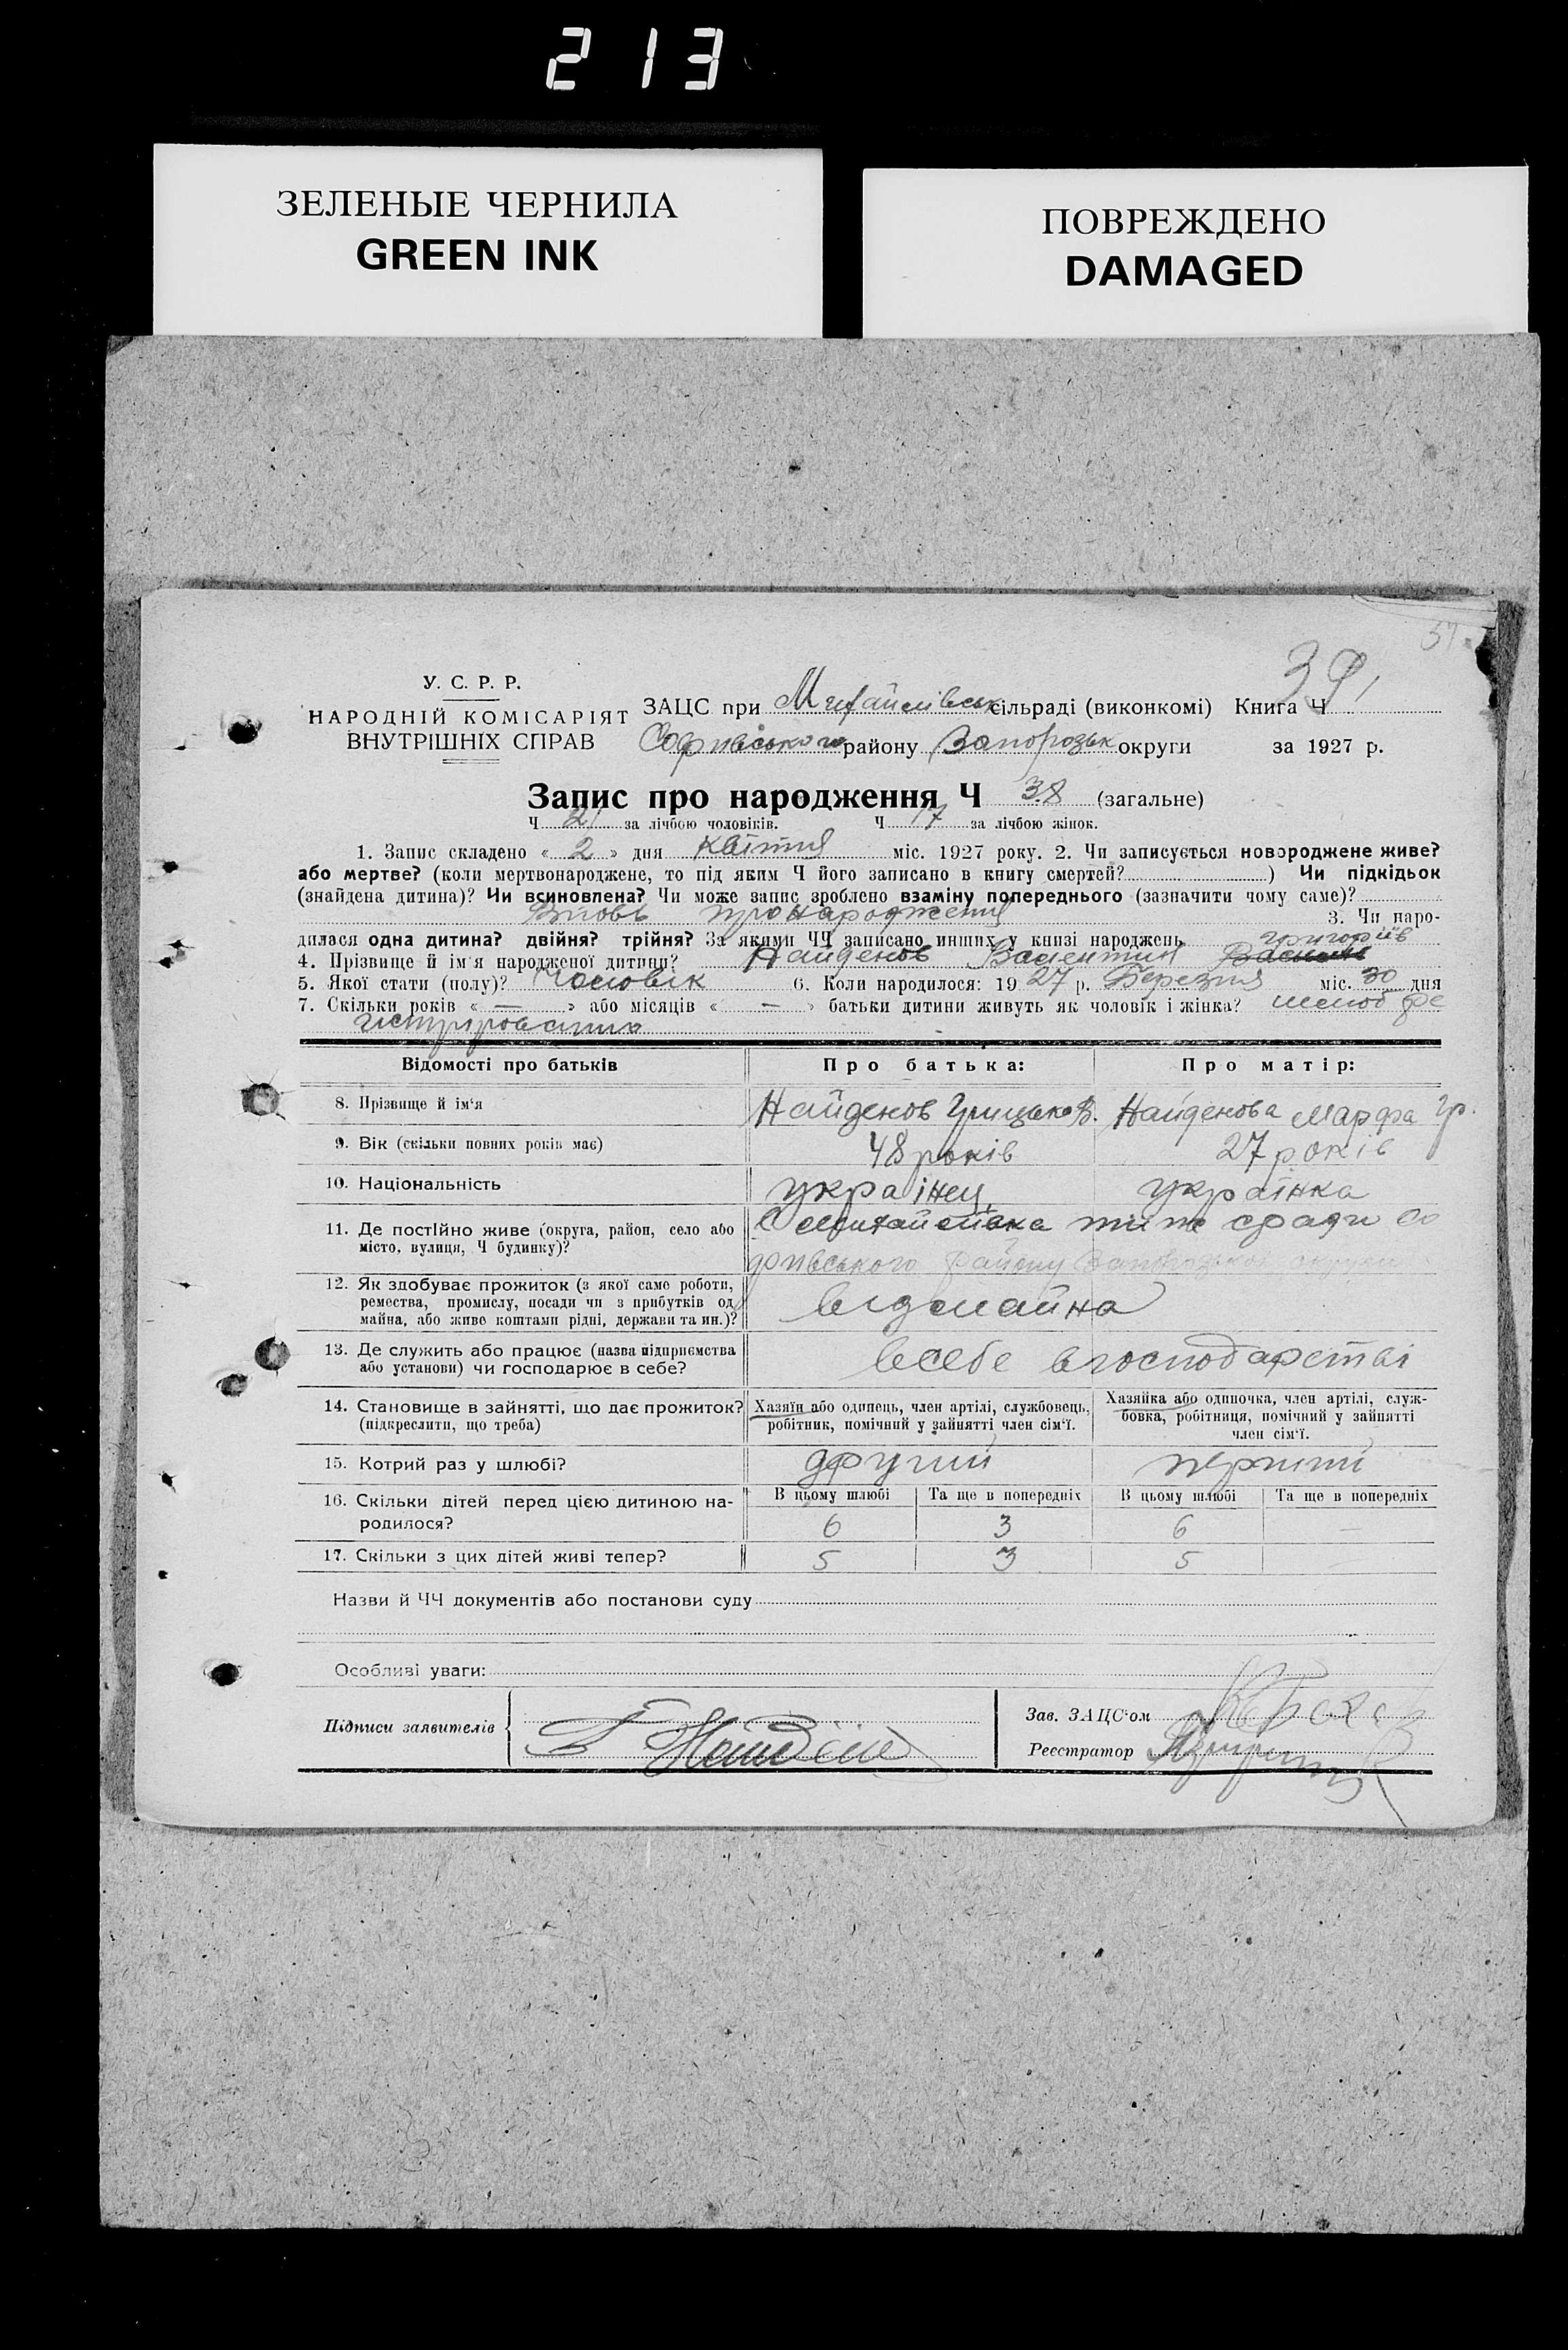 213
ЗЕЛЕНЫЕ ЧЕРНИЛА
GREEN INK
ПОВРЕЖДЕНО
DAMAGED
39
У. С. Р. Р.
НАРОДНІЙ КОМІСАРІЯТ
ВНУТРІШНІХ СПРАВ
ЗАЦС при Михайлівськ сільраді (виконкомі) Книга Ч
Софиівського району Запорозьк округи за 1927 р.
Запис про народження Ч 38 (загальне)
Ч 21 за лічбою чоловіків. Ч 17 за лічбою жінок.
1. Запис складено « 2 » дня квітня міс. 1927 року. 2. Чи записується новороджене живе?
або мертве? (коли мертвонароджене, то під яким Ч його записано в книгу смертей? ) Чи підкідьок
(знайдена дитина)? Чи всиновлена? Чи може запис зроблено взаміну попереднього (зазначити чому саме)?
Вновь про народження 3. Чи наро-
дилася одна дитина? двійня? трійня? За якими ЧЧ записано инших у книзі народжень григоріїв
4. Прізвище й ім'я народженої дитини? Найденов Валентин
5. Якої стати (полу)? Чоловік 6. Коли народилося: 19 27 р. Березня міс. 30 дня
7. Скільки років « — » або місяців « — » батьки дитини живуть як чоловік і жінка? шлюб ре
гистріровании
Відомості про батьків Про батька: Про матір:
8. Прізвище й ім'я Найденов Грицько В. Найденова Марфа Гр.
9. Вік (скільки повних років має) 48 років 27 років
10. Національність українец українка
11. Де постійно живе (округа, район, село або
місто, вулиця, Ч будинку)? С Михайлівка тиїж сради Со
фиівського району Запорозькоі округи
12. Як здобуває прожиток (з якої саме роботи,
ремества, промислу, посади чи з прибутків од
майна, або живе коштами рідні, держави та ин.)? від майна
13. Де служить або працює (назва підприємства
або установи) чи господарює в себе? всебе вгосподарстві
14. Становище в зайнятті, що дає прожиток?
(підкреслити, що треба)
Хазяїн або одинець, член артілі, службовець,
робітник, помічний у зайнятті член сім'ї.
Хазяйка або одиночка, член артілі, служ-
бовка, робітниця, помічний у зайнятті
член сім'ї.
15. Котрий раз у шлюбі? другий перший
16. Скільки дітей перед цією дитиною на-
родилося?
В цьому шлюбі Та ще в попередніх В цьому шлюбі Та ще в попередніх
6 3 6 —
17. Скільки з цих дітей живі тепер? 5 3 5
Назви й ЧЧ документів або постанови суду
Особливі уваги:
Підписи заявителів
Зав. ЗАЦС'ом
Реєстратор